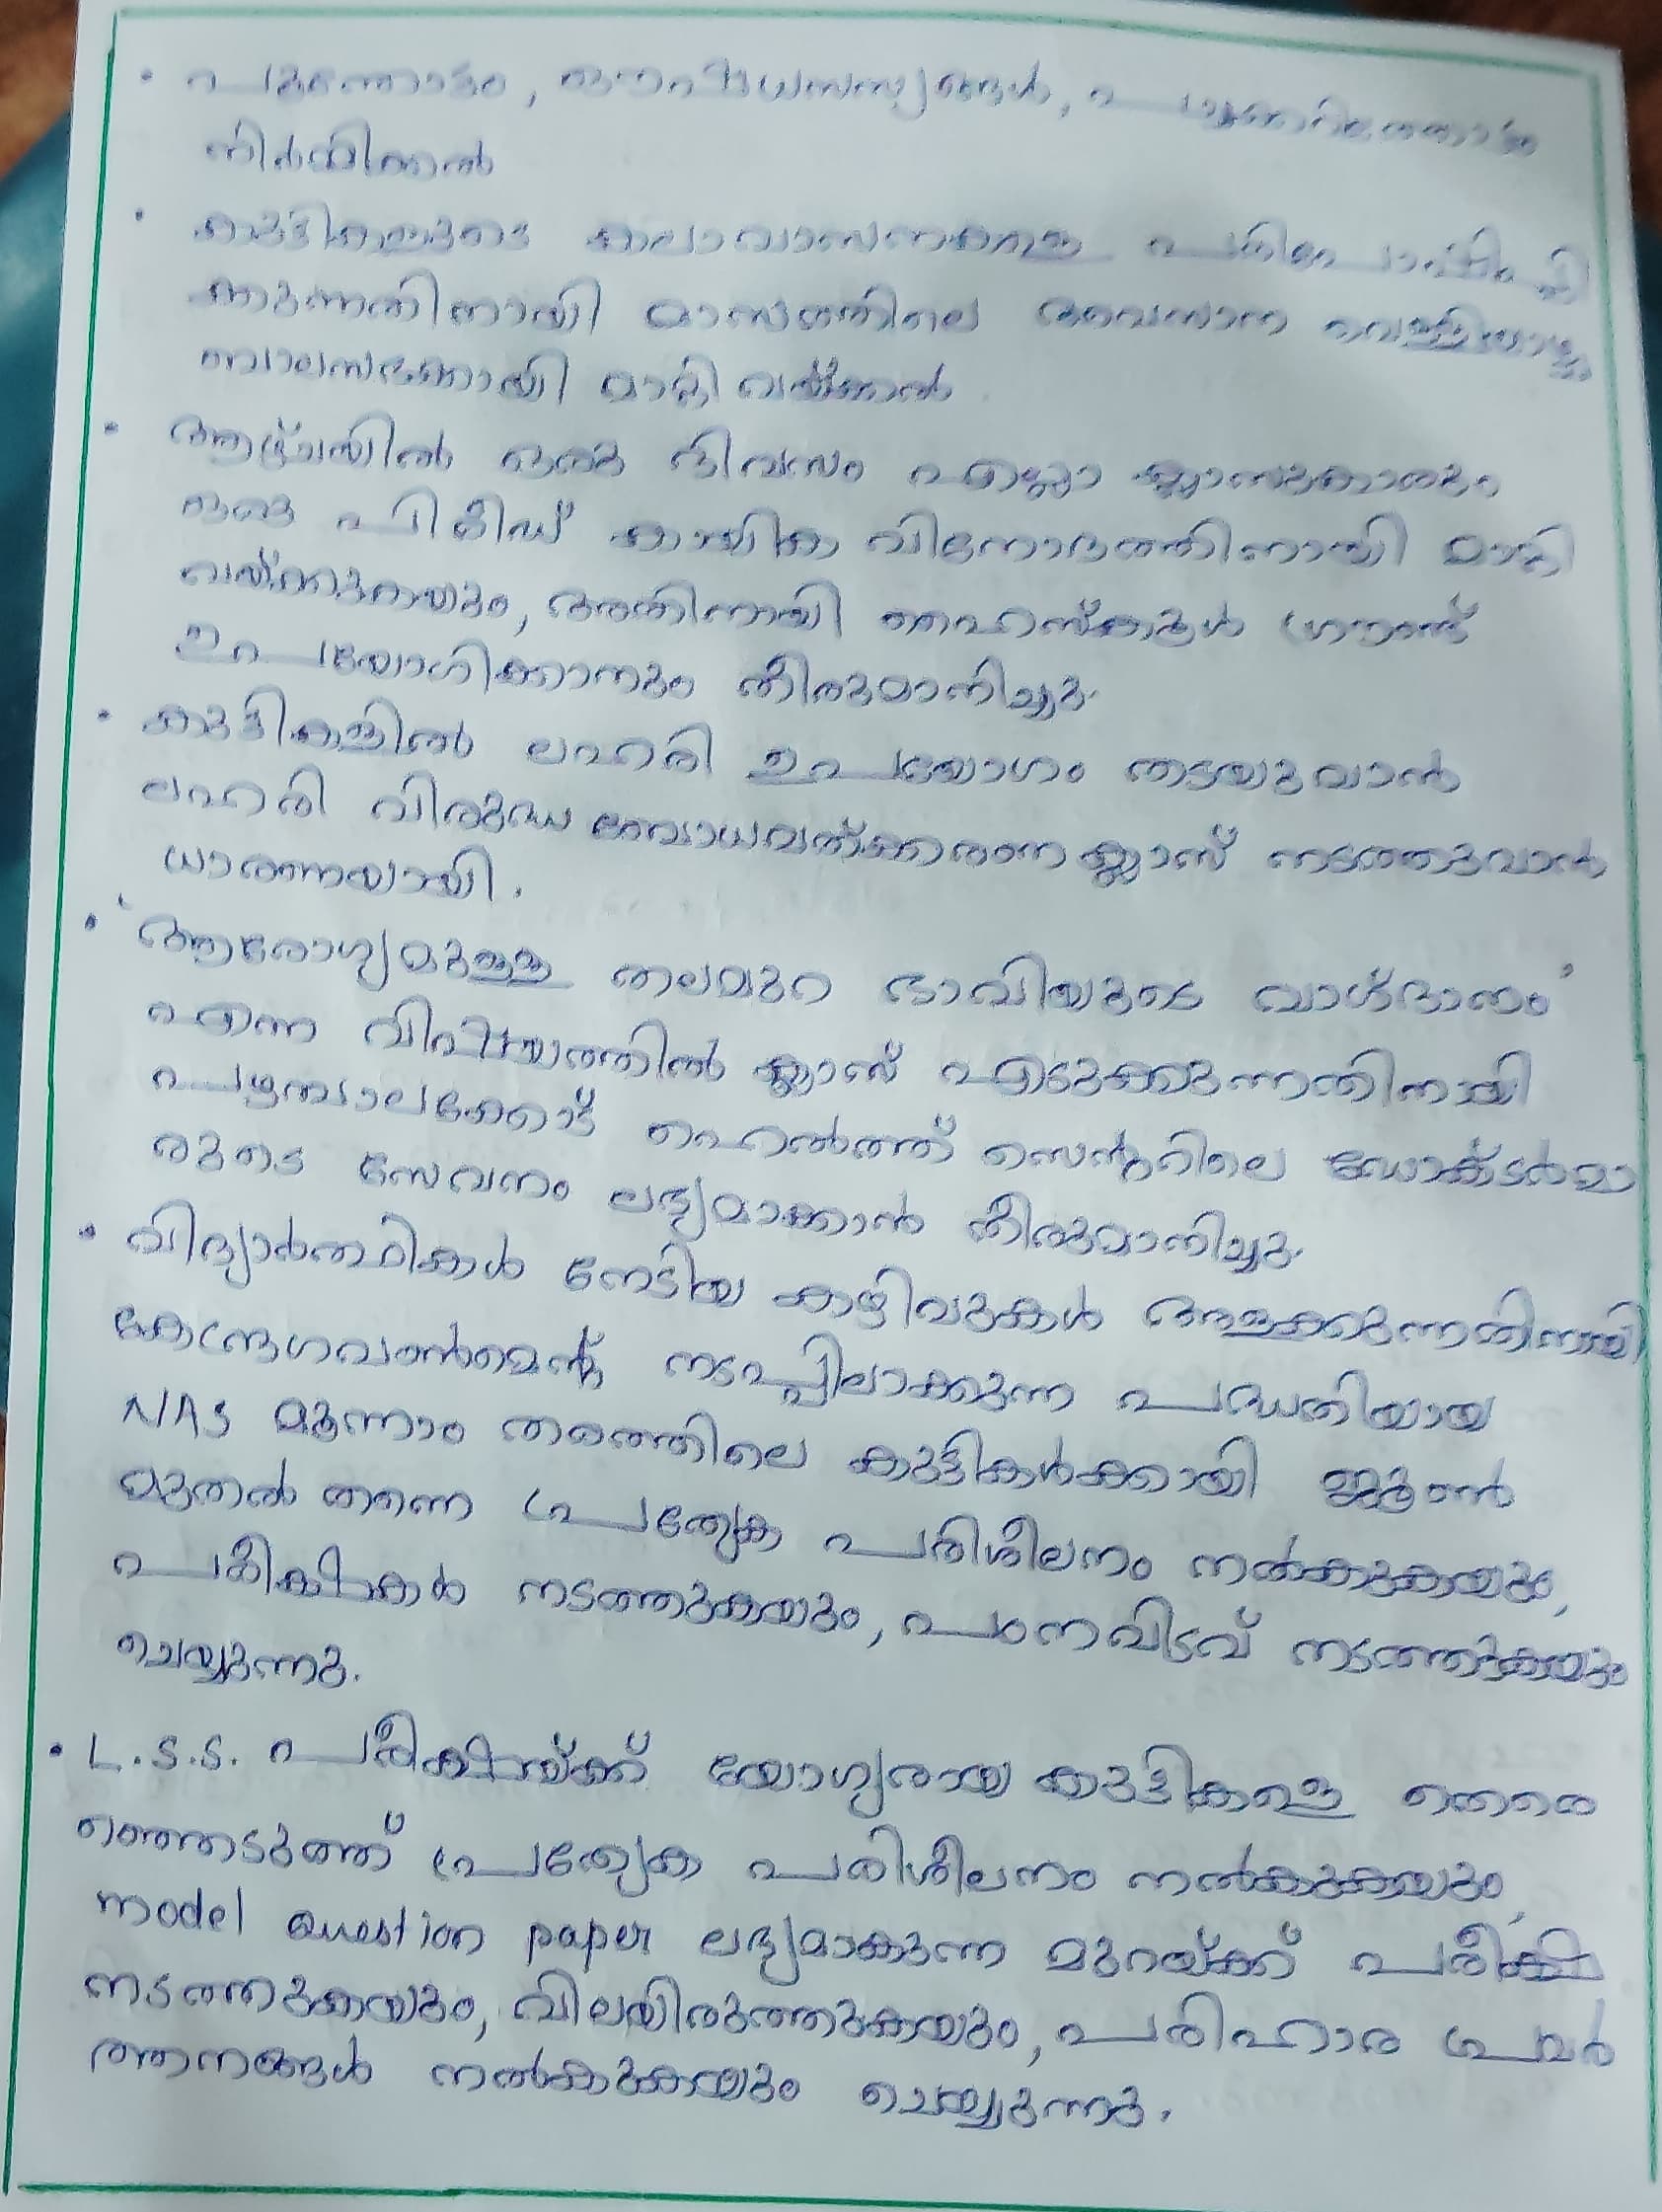 • പൂന്തോട്ടം, ഔഷധസസ്യങ്ങൾ, പച്ചക്കറിത്തോട്ടം
നിർമ്മിക്കൽ
• കുട്ടികളുടെ കലാവാസനകളെ പരിപോഷിപ്പി
ക്കുന്നതിനായി മാസത്തിലെ അവസാന വെള്ളിയാഴ്ച
ബാലസഭക്കായി മാറ്റി വയ്ക്കൽ.
• ആഴ്ചയിൽ ഒരു ദിവസം എല്ലാ ക്ലാസുകാരും
ഒരു പിരീഡ് കായിക വിനോദത്തിനായി മാറ്റി
വയ്ക്കുകയും, അതിനായി ഹൈസ്കൂൾ ഗ്രൗണ്ട്
ഉപയോഗിക്കാനും തീരുമാനിച്ചു.
• കുട്ടികളിൽ ലഹരി ഉപയോഗം തടയുവാൻ
ലഹരി വിരുദ്ധ ബോധവത്ക്കരണ ക്ലാസ് നടത്തുവാൻ
ധാരണയായി.
• ‘ആരോഗ്യമുള്ള തലമുറ ഭാവിയുടെ വാഗ്ദാനം’
എന്ന വിഷയത്തിൽ ക്ലാസ് എടുക്കുന്നതിനായി
പഴമ്പാലക്കോട് ഹെൽത്ത് സെന്ററിലെ ഡോക്ടർമാ
രുടെ സേവനം ലഭ്യമാക്കാൻ തീരുമാനിച്ചു.
• വിദ്യാർത്ഥികൾ നേടിയ കഴിവുകൾ അളക്കുന്നതിനായി
കേന്ദ്രഗവൺമെന്റ് നടപ്പിലാക്കുന്ന പദ്ധതിയായ
NAS മൂന്നാം തരത്തിലെ കുട്ടികൾക്കായി ജൂൺ
മുതൽ തന്നെ പ്രത്യേക പരിശീലനം നൽകുകയും,
പരീക്ഷകൾ നടത്തുകയും, പഠനവിടവ് നടത്തുകയും
ചെയ്യുന്നു.
• L.S.S. പരീക്ഷയ്ക്ക് യോഗ്യരായ കുട്ടികളെ തെരെ
ഞ്ഞെടുത്ത് പ്രത്യേക പരിശീലനം നൽകുകയും,
model Question paper ലഭ്യമാകുന്ന മുറയ്ക്ക് പരീക്ഷ
നടത്തുകയും, വിലയിരുത്തുകയും, പരിഹാര പ്രവർ
ത്തനങ്ങൾ നൽകുകയും ചെയ്യുന്നു.